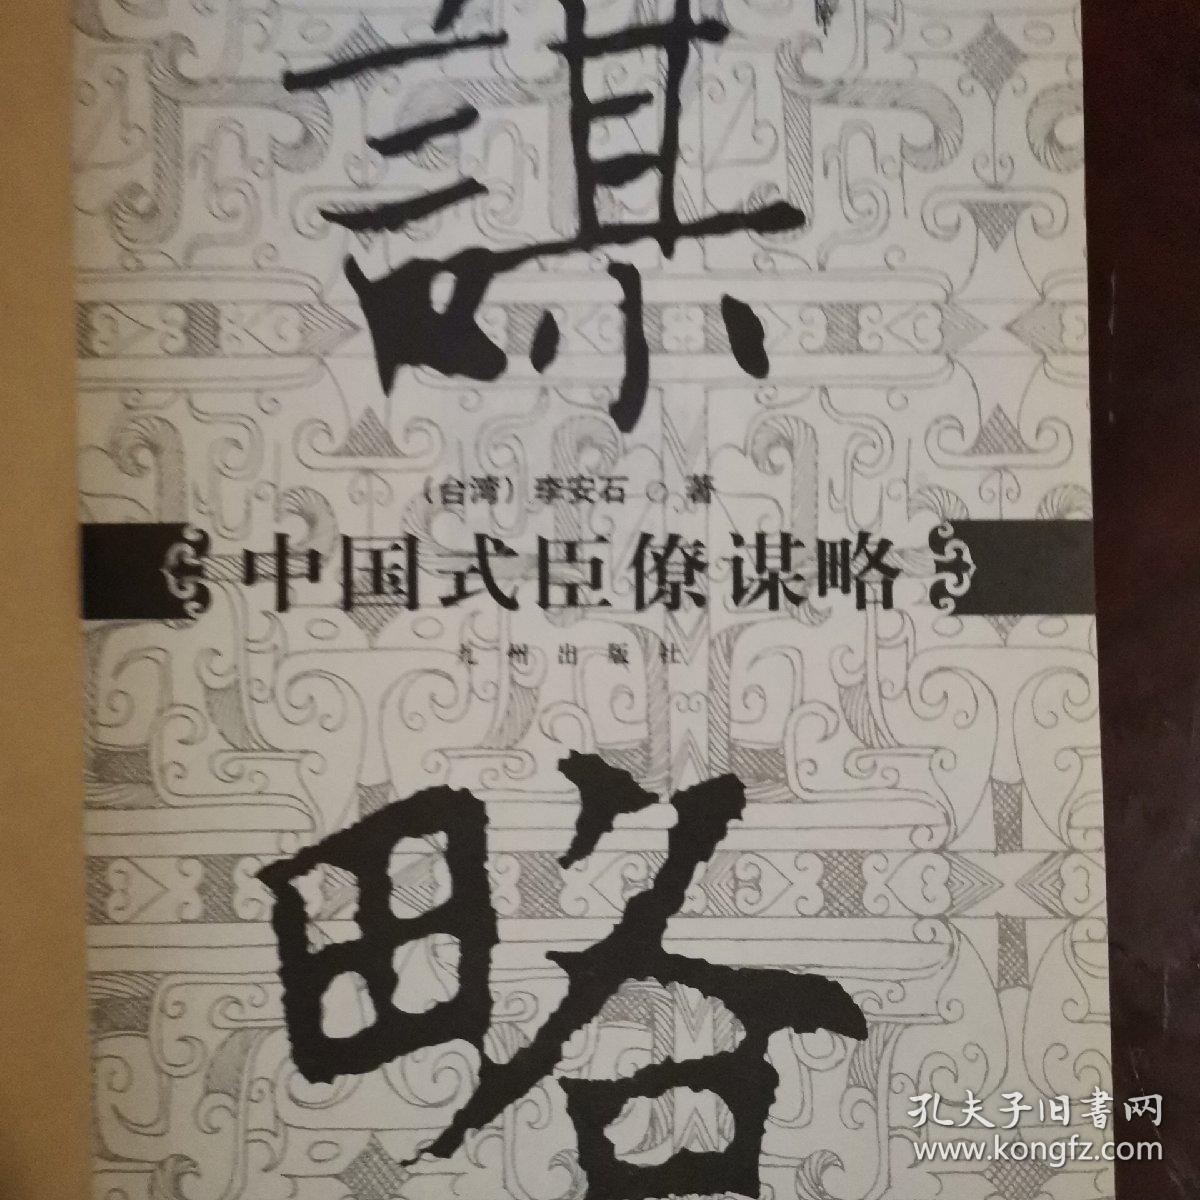 謀
（台湾）李安石 ○ 著
中国式臣僚谋略
九州出版社
略
孔夫子旧書网
www.kongfz.com